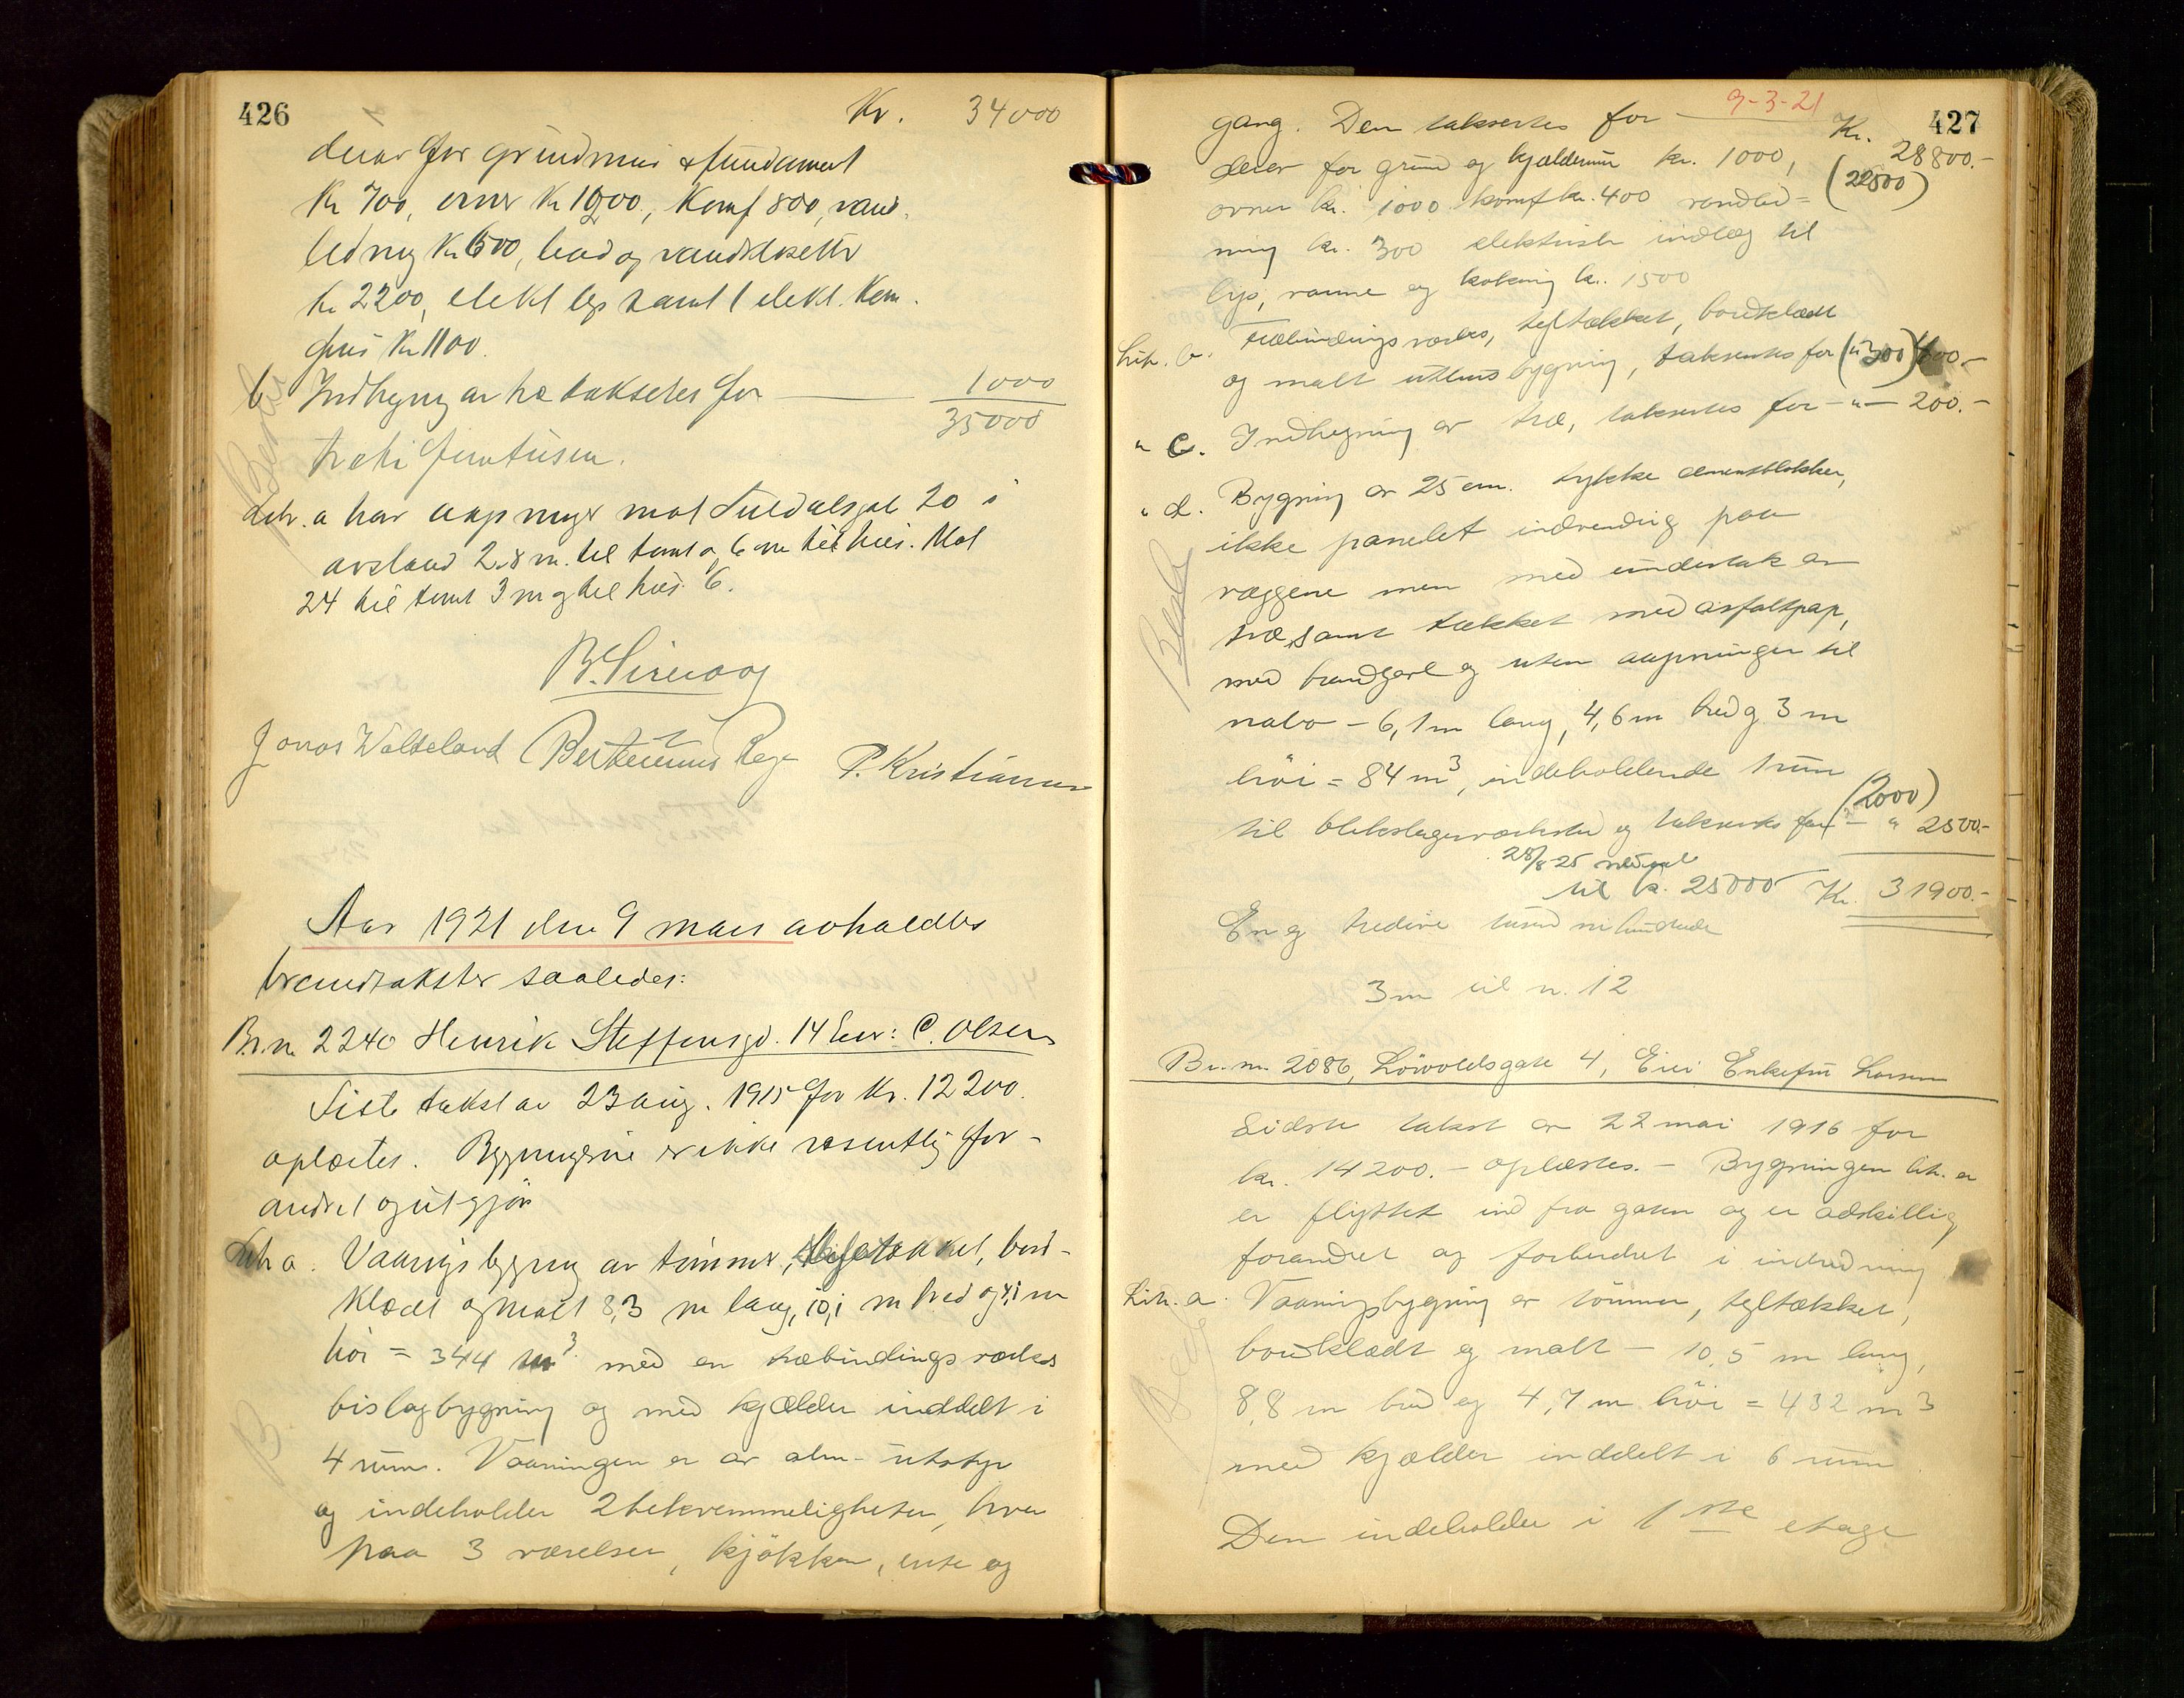 426
Kr. 34000
derav for grundmur & fundament
Kr 700, ovner Kr 1200, Komf 800, vand-
ledning Kr 600, bad og vandklosetter
Kr 2200, elekt lys samt 1 elekt. Kom-
fur Kr 1100.
b Indhegning av træ takseres for 1000
35000
Tretti femtusen.
Litr. a har aapninger mot Suldalsgt 20 i
avstand 2.8 m. til tomt og 6 m til hus. Mot
24 til tomt 3 m og til hus 6.
B. Sirevaag
Jonas Wölteland
P. Kristiansen
Aar 1921 den 9 mars avholdtes
brandtakster saaledes:
Br.nr. 2240 Henrik Steffensgd. 14 Eier: C. Olsen
Siste takst av 23 aug. 1915 for Kr. 12200.
oplæstes. Bygningerne er ikke væsentlig for-
andret og utgjør
Litr a. Vaaningsbygning av tømmer, tegltækket, bord-
klædt og malt 8,3 m lang, 10,1 m bred og 4,1 m
høi = 344 m³ med en træbindingsverks
bislagbygning og med kjælder inddelt i
4 rum. Vaaningen er av alm. utstyr
og indeholder 2 bekvemmeligheter, hver
paa 3 værelser, kjøkken, entre og
9-3-21
427
gang. Den taksertes for Kr. 28800.-
derav for grund og kjældermur kr. 1000, (22500)
ovner kr. 1000 komf kr. 400 vandled-
ning kr. 300 elektrisk indlæg til
lys, varme og kokning kr. 1500
Litr. b. Træbindingsverks, tegltækket, bordklædt
og malt uthusbygning, taksertes for (300) 400.-
" c. Indhegning av træ, taksertes for - " - 200.-
" d. Bygning av 25 cm. tykke cementblokker,
ikke panelet indvendig paa
væggene men med undertak av
træ, samt tækket med asfaltpap,
med brandgavl og uten aapninger til
nabo - 6,1 m lang, 4,6 m bred og 3 m
høi = 84 m³, indeholdende 1 rum
(2000)
til blikslagerverksted og taksertes for - " 2500.-
28/8-25 nedsat
til kr. 25000 Kr. 31900.-
En og tredive tusind ni hundrede
3 m til nr. 12
Br. nr. 2086, Løvoldsgate 4, Eier Enkefru Larsen
Sidste takst av 22 mai 1916 for
kr. 14200.- oplæstes. - Bygningen litr. a
er flyttet ind fra gaten og er adskillig
forandret og forbedret i indredning
Litr. a. Vaaningsbygning av tømmer, tegltækket,
bordklædt og malt - 10,5 m lang,
8,8 m bred og 4,7 m høi = 432 m³
med kjælder inddelt i 6 rum.
Den indeholder i 1ste etage